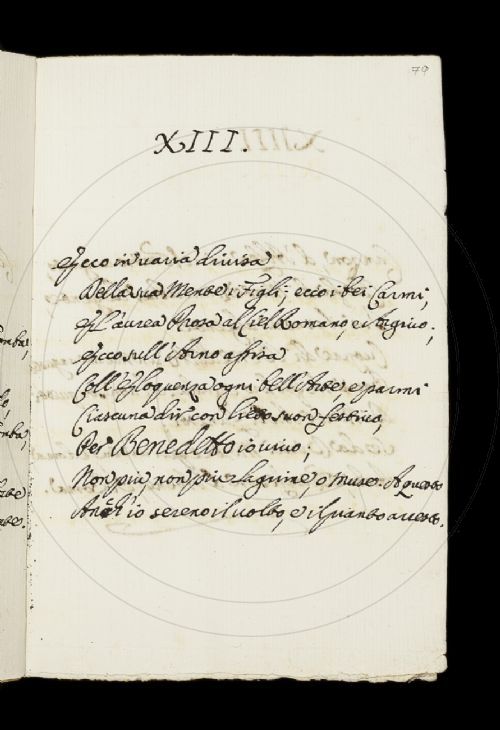 79
XIII.
Ecco in varia divisa
Della sua Mente i Figli; ecco i bei Carmi,
E l'aurea Prosa al Ciel Romano, e Argivo;
Ecco sull'Arno assisa
Coll'Eloquenza ogni bell'Arte, e parmi
Ciascuna dir con lieto suon festivo,
Per Benedetto io vivo;
Non più, non più lagrime, o Muse. A questo
Anch'io sereno il volto, e il pianto arresto.